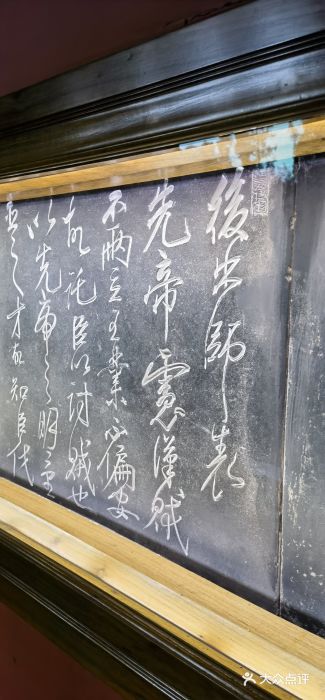 後出師表
先帝慮漢賊
不兩立王業不偏安
故託臣以討賊也
以先帝之明量
臣之才故知臣伐
大众点评